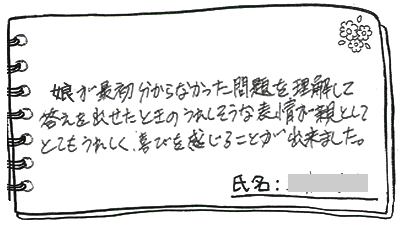 娘が最初分からなかった問題を理解して
答えを出せたときのうれしそうな表情が親として
とてもうれしく、喜びを感じることが出来ました。
氏名: